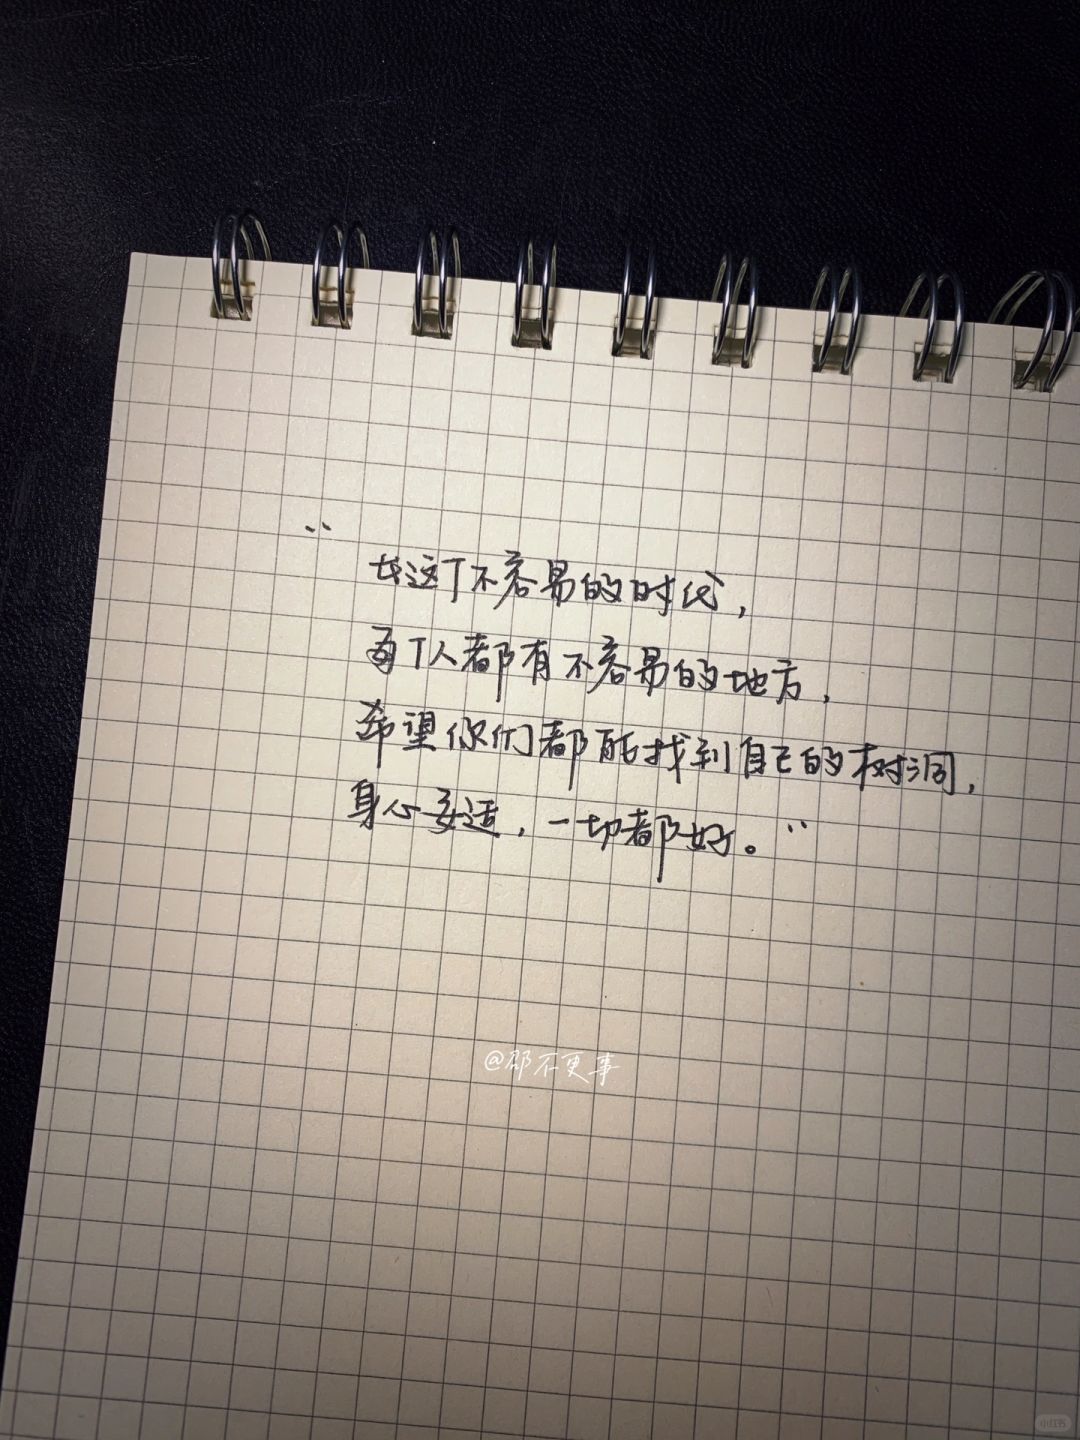 “在这个不容易的时代，
每个人都有不容易的地方，
希望你们都能找到自己的树洞，
身心妥适，一切都好。”
@邵不更事
小红书